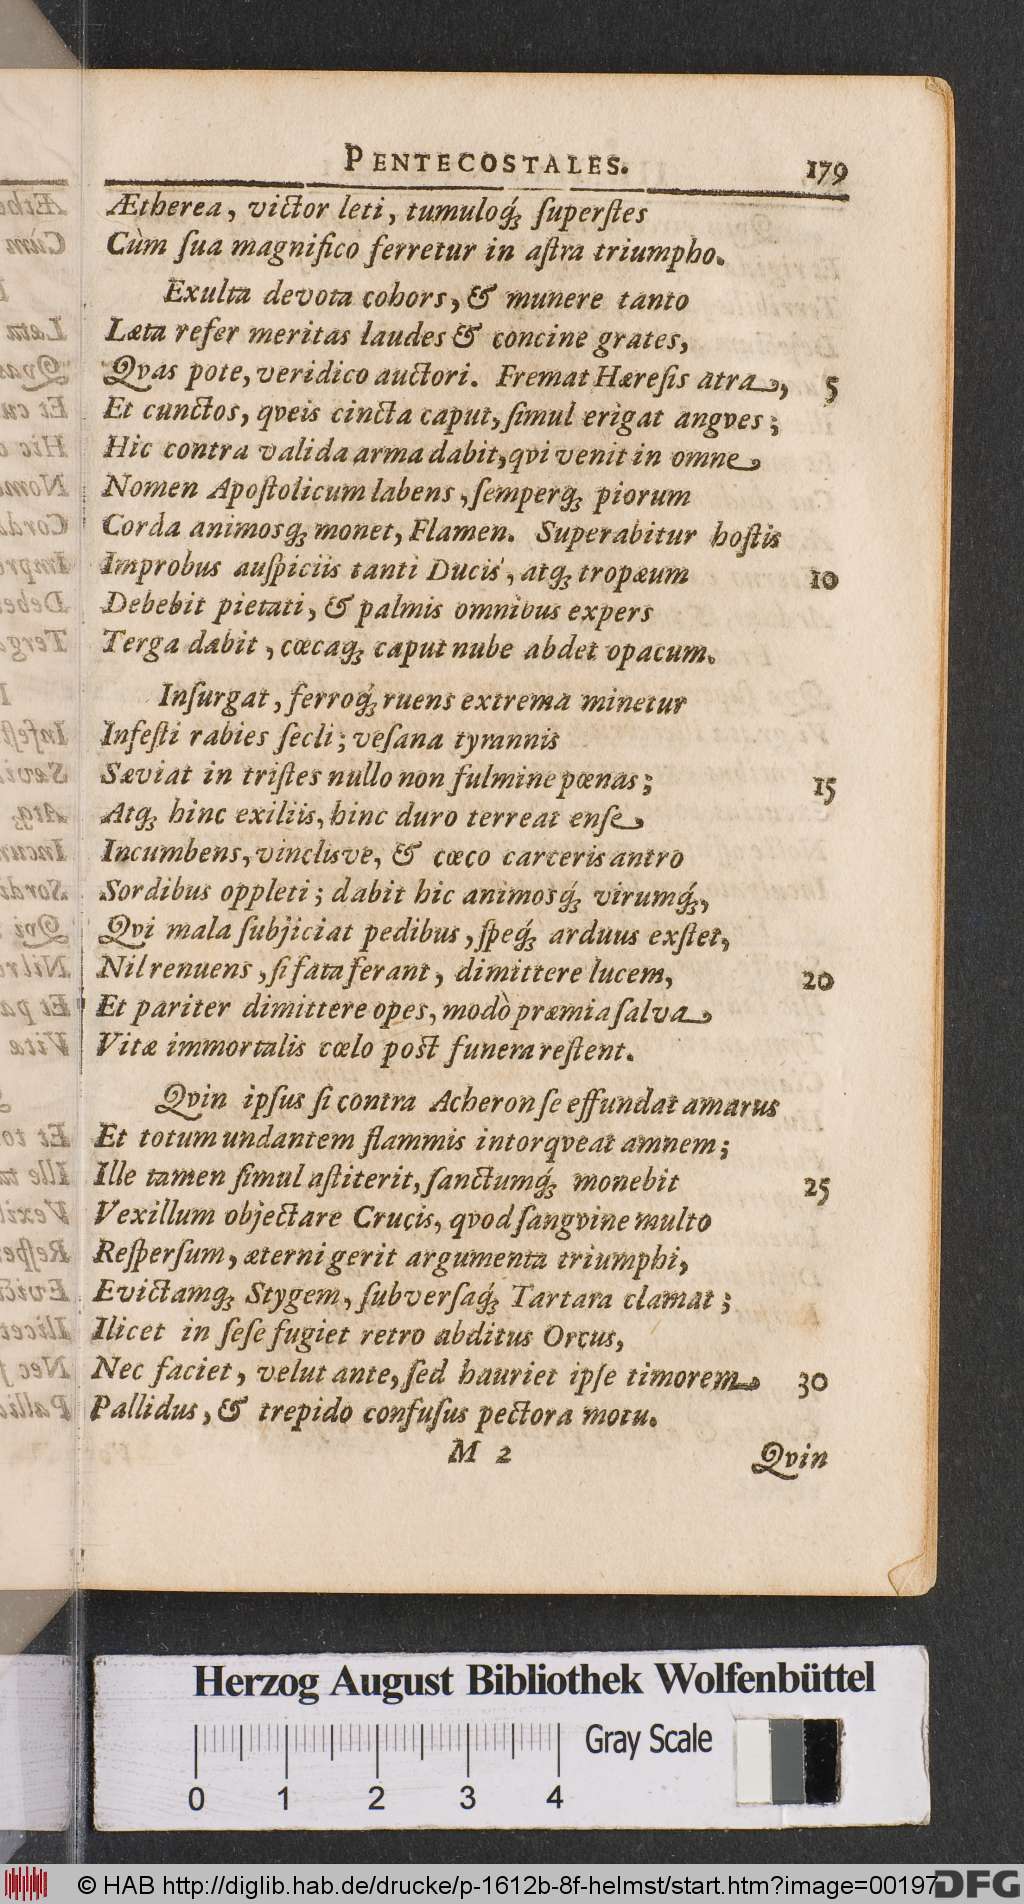 PENTECOSTALES. 179
Ætherea, victor leti, tumuloq́; ſuperſtes
Cùm ſua magnifico ferretur in aſtra triumpho.
Exulta devota cohors, & munere tanto
Læta refer meritas laudes & concine grates,
Qvas pote, veridico auctori. Fremat Hæreſis atra, 5
Et cunctos, qveis cincta caput, ſimul erigat angves;
Hic contra valida arma dabit, qvi venit in omne
Nomen Apoſtolicum labens, ſemperq; piorum
Corda animosq; monet, Flamen. Superabitur hoſtis
Improbus auſpiciis tanti Ducis, atq; tropæum 10
Debebit pietati, & palmis omnibus expers
Terga dabit, cœcaq; caput nube abdet opacum.
Inſurgat, ferroq́; ruens extrema minetur
Infeſti rabies ſecli; veſana tyrannis
Sæviat in triſtes nullo non fulmine pœnas; 15
Atq; hinc exiliis, hinc duro terreat enſe
Incumbens, vinclisve, & cœco carceris antro
Sordibus oppleti; dabit hic animosq́; virumq́;,
Qvi mala ſubjiciat pedibus, ſpeq́; arduus exſtet,
Nil renuens, ſi fata ferant, dimittere lucem, 20
Et pariter dimittere opes, modò præmia ſalva
Vitæ immortalis cœlo poſt funera reſtent.
Qvin ipſus ſi contra Acheron ſe effundat amarus
Et totum undantem flammis intorqveat amnem;
Ille tamen ſimul aſtiterit, ſanctumq́; monebit 25
Vexillum objectare Crucis, qvod ſangvine multo
Reſperſum, æterni gerit argumenta triumphi,
Evictamq; Stygem, ſubverſaq́; Tartara clamat;
Ilicet in ſeſe fugiet retro abditus Orcus,
Nec faciet, velut ante, ſed hauriet ipſe timorem 30
Pallidus, & trepido confuſus pectora motu.
M 2 Qvin
Herzog August Bibliothek Wolfenbüttel
Gray Scale
0 1 2 3 4
© HAB http://diglib.hab.de/drucke/p-1612b-8f-helmst/start.htm?image=00197
DFG